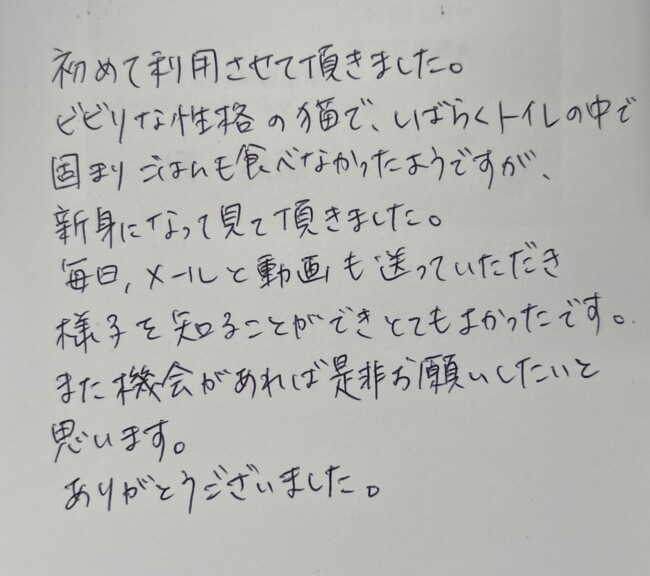 初めて利用させて頂きました。
ビビリな性格の猫で、しばらくトイレの中で
固まりごはんも食べなかったようですが、
新身になって見て頂きました。
毎日、メールと動画も送っていただき
様子を知ることができとてもよかったです。
また機会があれば是非お願いしたいと
思います。
ありがとうございました。